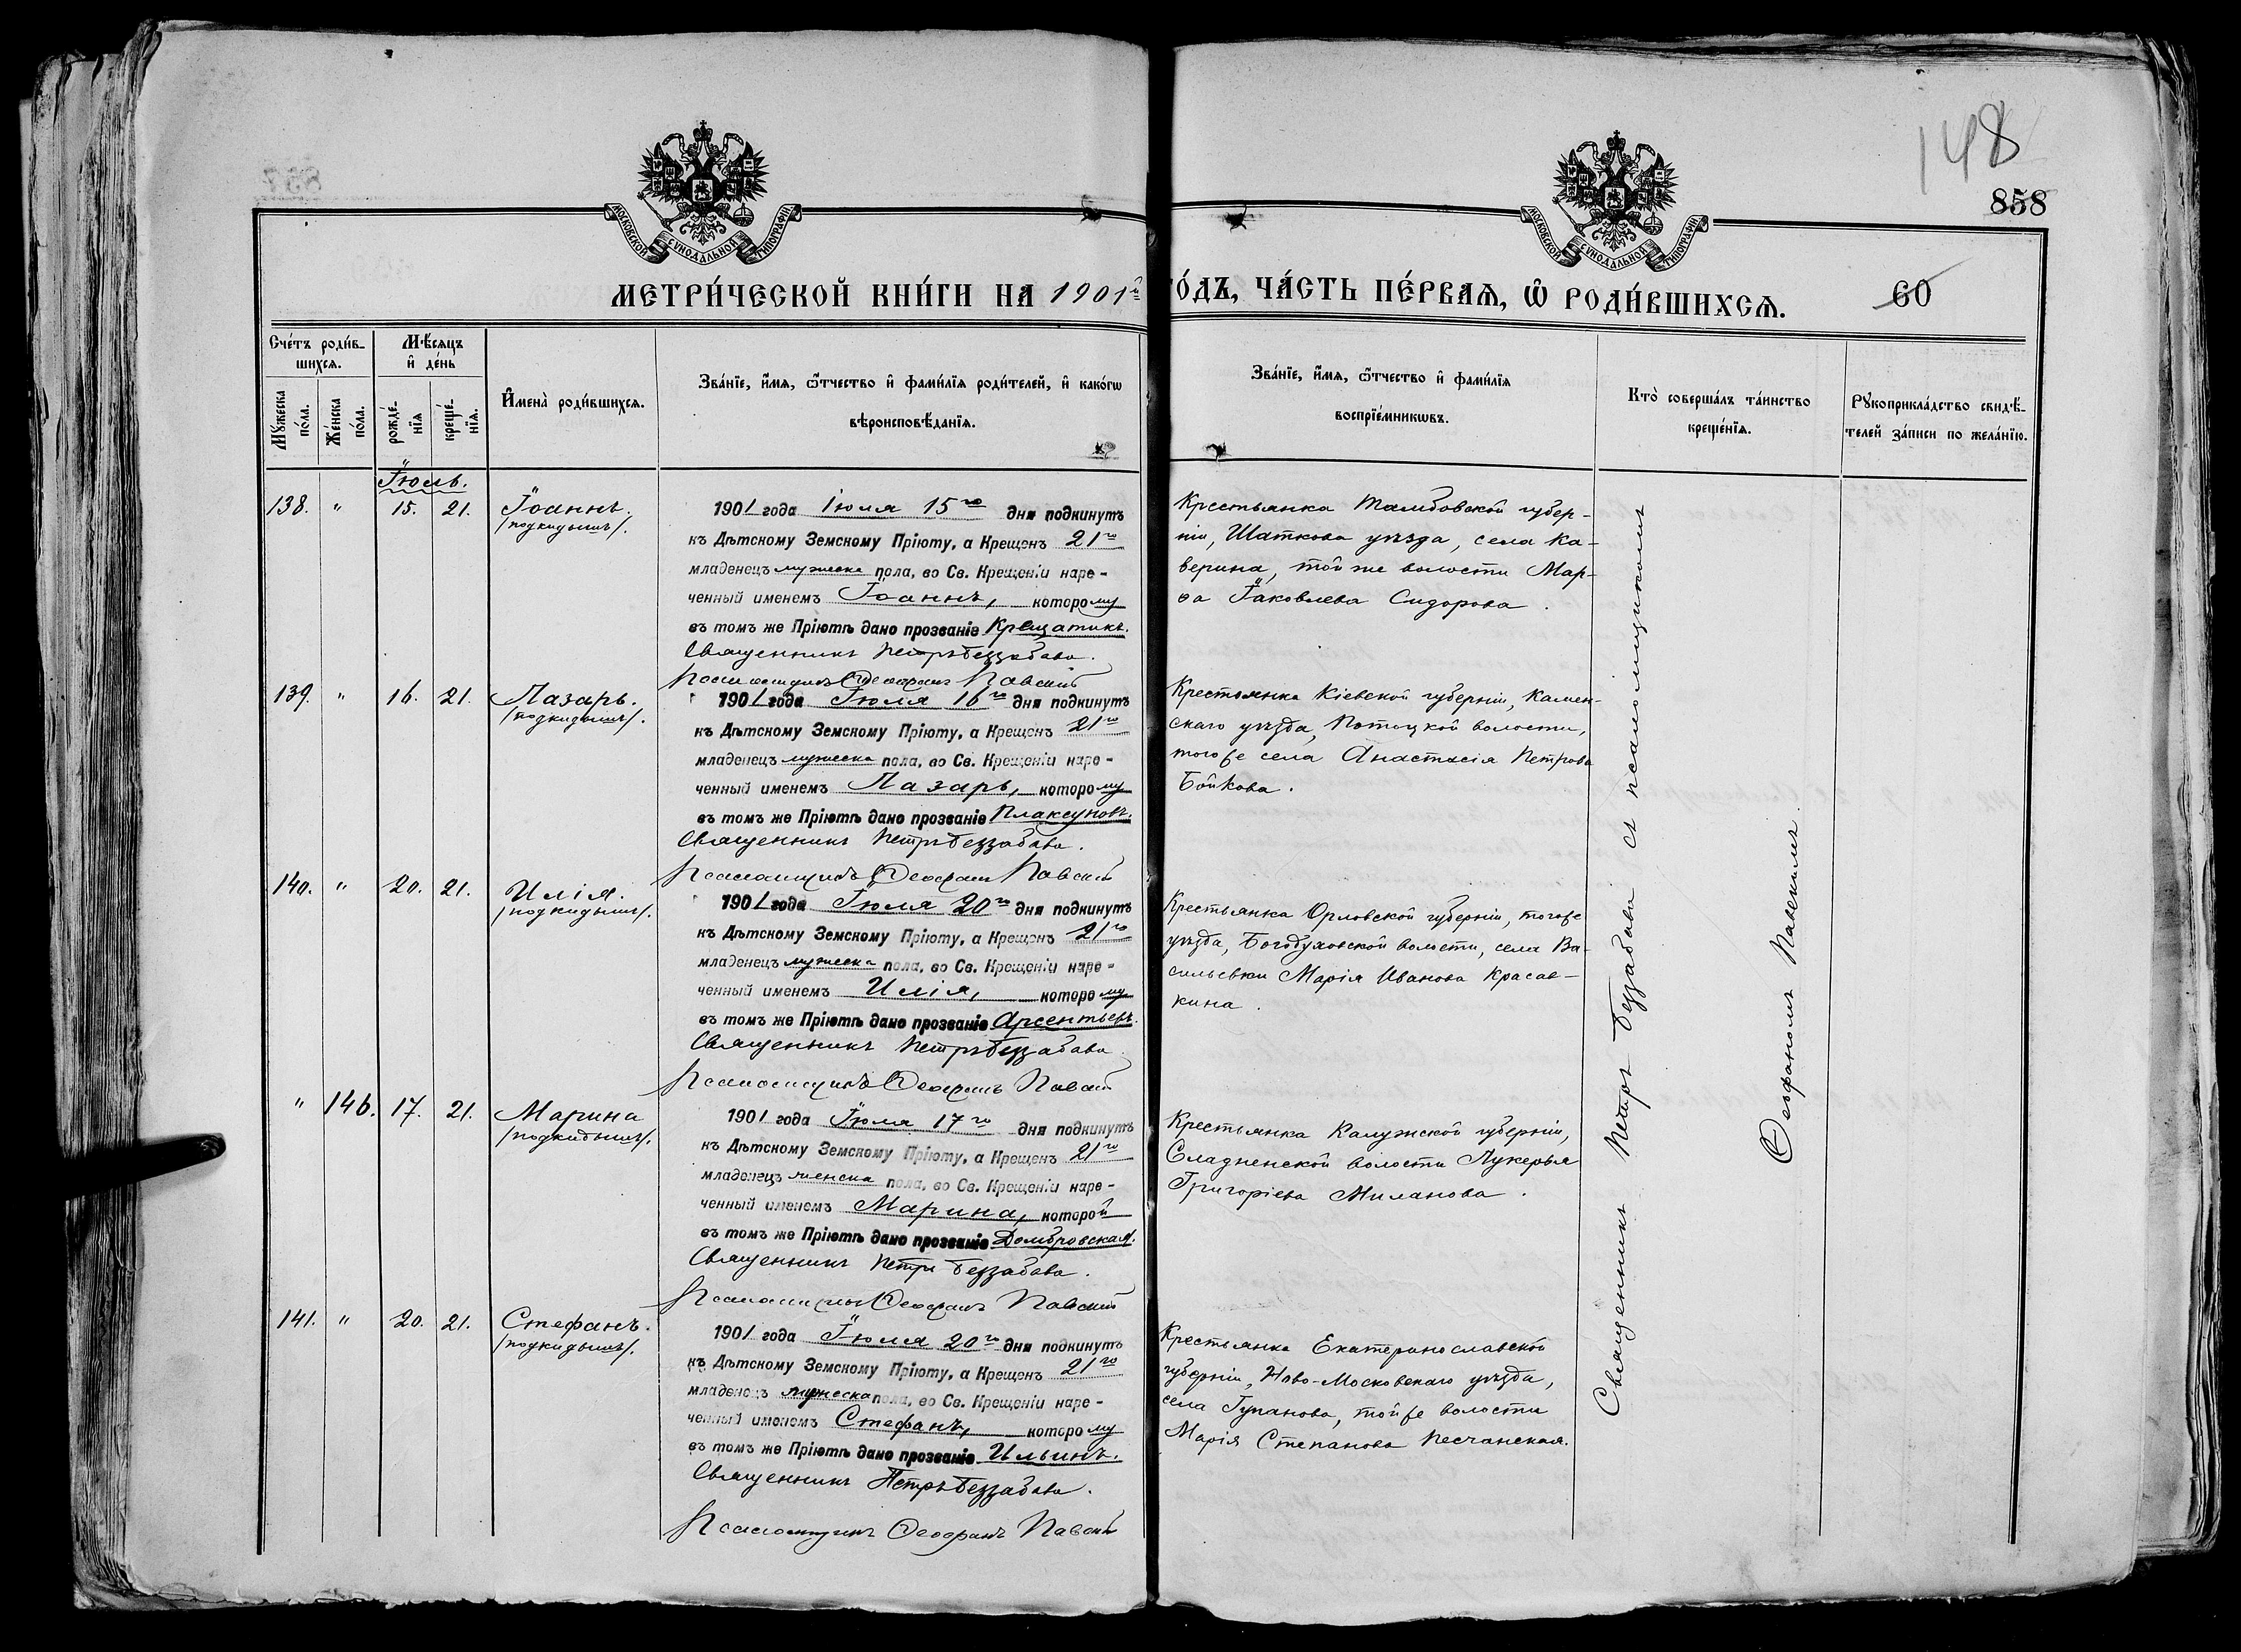 148
858
МОСКОВСКОЙ СѴНОДАЛЬНОЙ ТИПОГРАФІИ
МОСКОВСКОЙ СѴНОДАЛЬНОЙ ТИПОГРАФІИ
МЕТРИ́ЧЕСКОЙ КНИ́ГИ НА 1901й
ГО́ДЪ, ЧА́СТЬ ПЕ́РВАѦ, Ѽ РОДИ́ВШИХСѦ.
60
Сче́тъ роди́в-
шихсѧ.
Мѣ́сѧцъ
и҆ де́нь
Мꙋ́жеска
по́ла.
Же́нска
по́ла.
рожде́-
нїѧ
креще́-
нїѧ.
И҆мена̀ роди́вшихсѧ.
Зва́нїе, и҆́мѧ, ѻ҆́тчество и҆ фами́лїѧ роди́телей, и҆ како́гѡ
вѣроисповѣ́данїѧ.
Зва́нїе, и҆́мѧ, ѻ҆́тчество и҆ фами́лїѧ
воспрїе́мникѡвъ.
Кто̀ соверша́лъ та́инство
креще́нїѧ.
Рꙋкоприкла́дство свидѣ́-
телей за́писи по жела́нїю.
Іюль.
138. " 15. 21. Іоаннъ.
/подкидышъ/.
1901 года Іюля 15го дня подкинутъ
къ Дѣтскому Земскому Пріюту, а Крещенъ 21го
младенецъ мужеска пола, во Св. Крещеніи наре-
ченный именемъ Іоаннъ, которому
въ томъ же Пріютѣ дано прозваніе Крещатикъ.
Священникъ Петръ Беззабава.
Псаломщикъ Ѳеофанъ Павскій
Крестьянка Тамбовской губер-
ніи, Шаткова уѣзда, села Ка-
верина, той же волости Мар-
ѳа Іаковлева Сидорова.
139. " 16. 21. Лазарь.
/подкидышъ/.
1901 года Іюля 16го дня подкинутъ
къ Дѣтскому Земскому Пріюту, а Крещенъ 21го
младенецъ мужеска пола, во Св. Крещеніи наре-
ченный именемъ Лазарь, которому
въ томъ же Пріютѣ дано прозваніе Плаксуновъ.
Священникъ Петръ Беззабава.
Псаломщикъ Ѳеофанъ Павскій
Крестьянка Кіевской губерніи, Камен-
скаго уѣзда, Потоцкой волости,
того же села Анастасія Петрова
Бойкова.
140. " 20. 21. Илія.
/подкидышъ/.
1901 года Іюля 20го дня подкинутъ
къ Дѣтскому Земскому Пріюту, а Крещенъ 21го
младенецъ мужеска пола, во Св. Крещеніи наре-
ченный именемъ Илія, которому
въ томъ же Пріютѣ дано прозваніе Арсентьевъ.
Священникъ Петръ Беззабава.
Псаломщикъ Ѳеофанъ Павскій
Крестьянка Орловской губерніи, того же
уѣзда, Богодуховской волости, села Ва-
сильевки Марія Иванова Красав-
кина.
" 146. 17. 21. Марина
/подкидышъ/.
1901 года Іюля 17го дня подкинутъ
къ Дѣтскому Земскому Пріюту, а Крещенъ 21го
младенецъ женска пола, во Св. Крещеніи наре-
ченный именемъ Марина, которой
въ томъ же Пріютѣ дано прозваніе Домбровская.
Священникъ Петръ Беззабава.
Псаломщикъ Ѳеофанъ Павскій
Крестьянка Калужской губерніи,
Сладненской волости Лукерья
Григоріева Миланова.
141. " 20. 21. Стефанъ.
/подкидышъ/.
1901 года Іюля 20го дня подкинутъ
къ Дѣтскому Земскому Пріюту, а Крещенъ 21го
младенецъ мужеска пола, во Св. Крещеніи наре-
ченный именемъ Стефанъ, которому
въ томъ же Пріютѣ дано прозваніе Ильинъ.
Священникъ Петръ Беззабава.
Псаломщикъ Ѳеофанъ Павскій
Крестьянка Екатеринославской
губерніи, Ново-Московскаго уѣзда,
села Гупанова, той же волости
Марія Степанова Песчанская.
Священникъ Петръ Беззабава съ псаломщикомъ
Ѳеофаномъ Павскимъ.